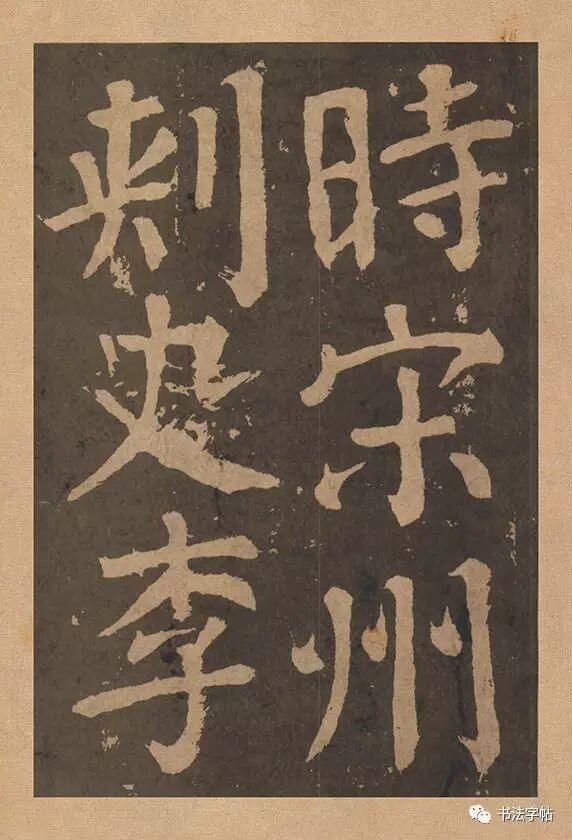 時宋州
刺史李
书法字帖